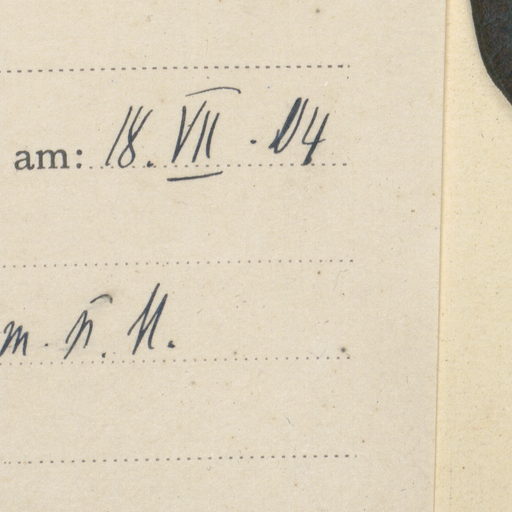 am: 18. VII. 04
m. n. H.